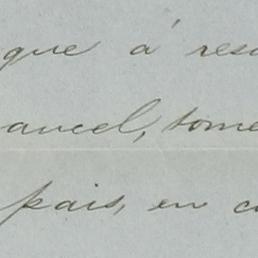 que á res
ancel, tome
pais, en c